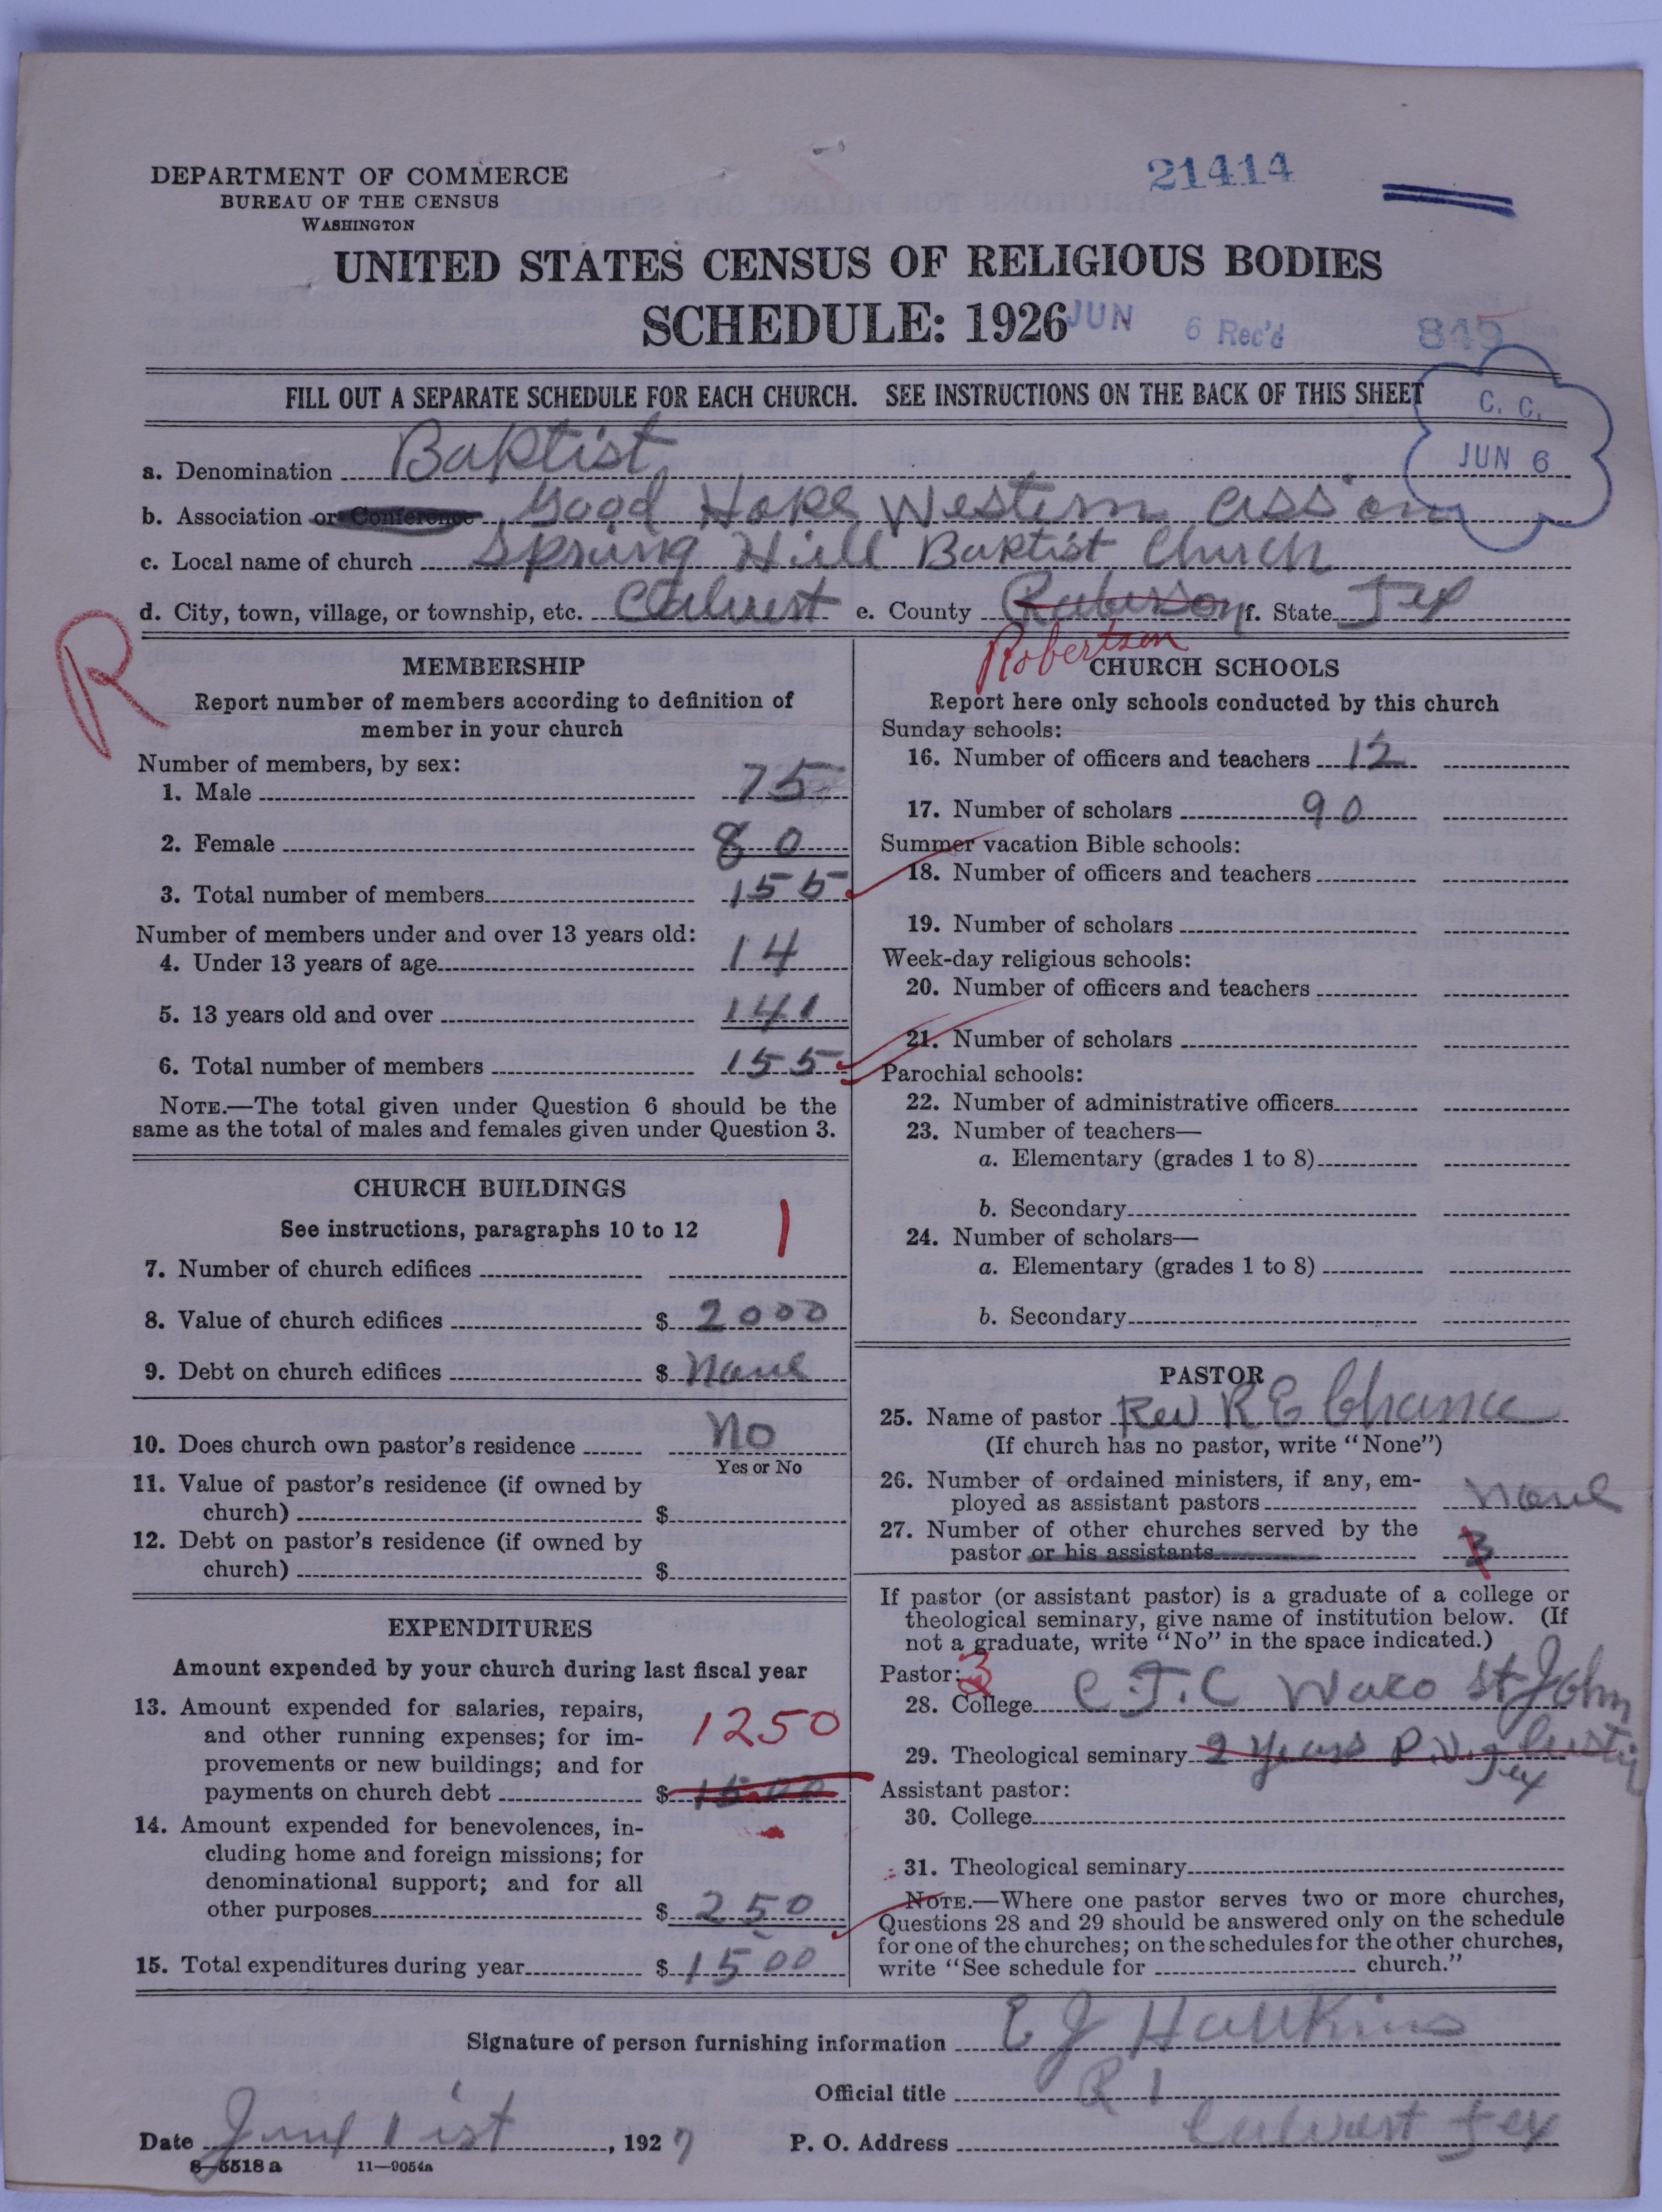 21414
DEPARTMENT OF COMMERCE
BUREAU OF THE CENSUS
WASHINGTON
UNITED STATES CENSUS OF RELIGIOUS BODIES
SCHEDULE: 1926
JUN 6 Rec'd 849
FILL OUT A SEPARATE SCHEDULE FOR EACH CHURCH. SEE INSTRUCTIONS ON THE BACK OF THIS SHEET
C. C.
JUN 6
a. Denomination Baptist
b. Association or Conference Good Hope Western assion
c. Local name of church Spring Hill Baptist Church
d. City, town, village, or township, etc. Calvert e. County Roberson f. State Tex
Robertson
R
MEMBERSHIP
Report number of members according to definition of
member in your church
Number of members, by sex:
1. Male 75
2. Female 80
3. Total number of members 155
Number of members under and over 13 years old:
4. Under 13 years of age 14
5. 13 years old and over 141
6. Total number of members 155
NOTE.—The total given under Question 6 should be the
same as the total of males and females given under Question 3.
CHURCH BUILDINGS
See instructions, paragraphs 10 to 12
7. Number of church edifices 1
8. Value of church edifices $ 2000
9. Debt on church edifices $ None
10. Does church own pastor's residence No
Yes or No
11. Value of pastor's residence (if owned by
church) $
12. Debt on pastor's residence (if owned by
church) $
EXPENDITURES
Amount expended by your church during last fiscal year
13. Amount expended for salaries, repairs,
and other running expenses; for im-
provements or new buildings; and for
payments on church debt $ 1500
1250
14. Amount expended for benevolences, in-
cluding home and foreign missions; for
denominational support; and for all
other purposes $ 250
15. Total expenditures during year $ 1500
CHURCH SCHOOLS
Report here only schools conducted by this church
Sunday schools:
16. Number of officers and teachers 12
17. Number of scholars 90
Summer vacation Bible schools:
18. Number of officers and teachers
19. Number of scholars
Week-day religious schools:
20. Number of officers and teachers
21. Number of scholars
Parochial schools:
22. Number of administrative officers
23. Number of teachers—
a. Elementary (grades 1 to 8)
b. Secondary
24. Number of scholars—
a. Elementary (grades 1 to 8)
b. Secondary
PASTOR
25. Name of pastor Rev R E Chance
(If church has no pastor, write "None")
26. Number of ordained ministers, if any, em-
ployed as assistant pastors None
27. Number of other churches served by the
pastor or his assistants 3
If pastor (or assistant pastor) is a graduate of a college or
theological seminary, give name of institution below. (If
not a graduate, write "No" in the space indicated.)
Pastor: 3
28. College C.T.C Waco St John
29. Theological seminary 2 years Austin
Tex
Assistant pastor:
30. College
31. Theological seminary
NOTE.—Where one pastor serves two or more churches,
Questions 28 and 29 should be answered only on the schedule
for one of the churches; on the schedules for the other churches,
write "See schedule for church."
Signature of person furnishing information E J Hawkins
Official title R 1
Date June 1 ist, 1927 P. O. Address Calvert Tex
8—5518 a 11—9054a